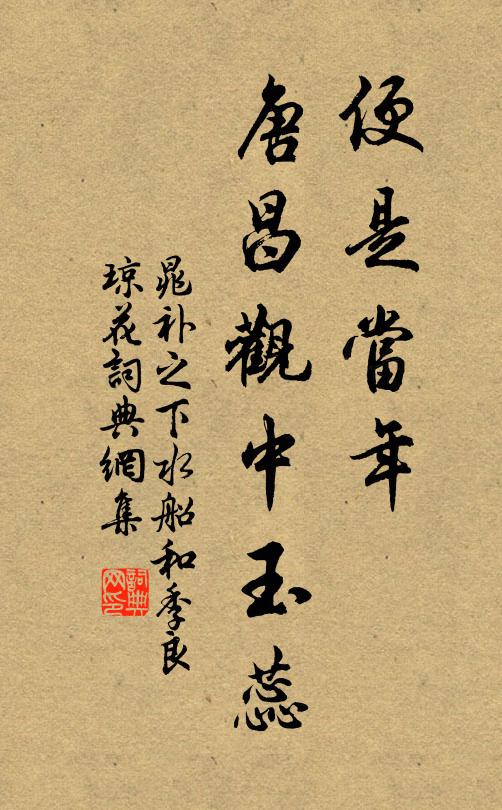 便是當年
唐昌觀中玉蕊
晁补之下水船和季良
琼花詞典網集
詞典
网印